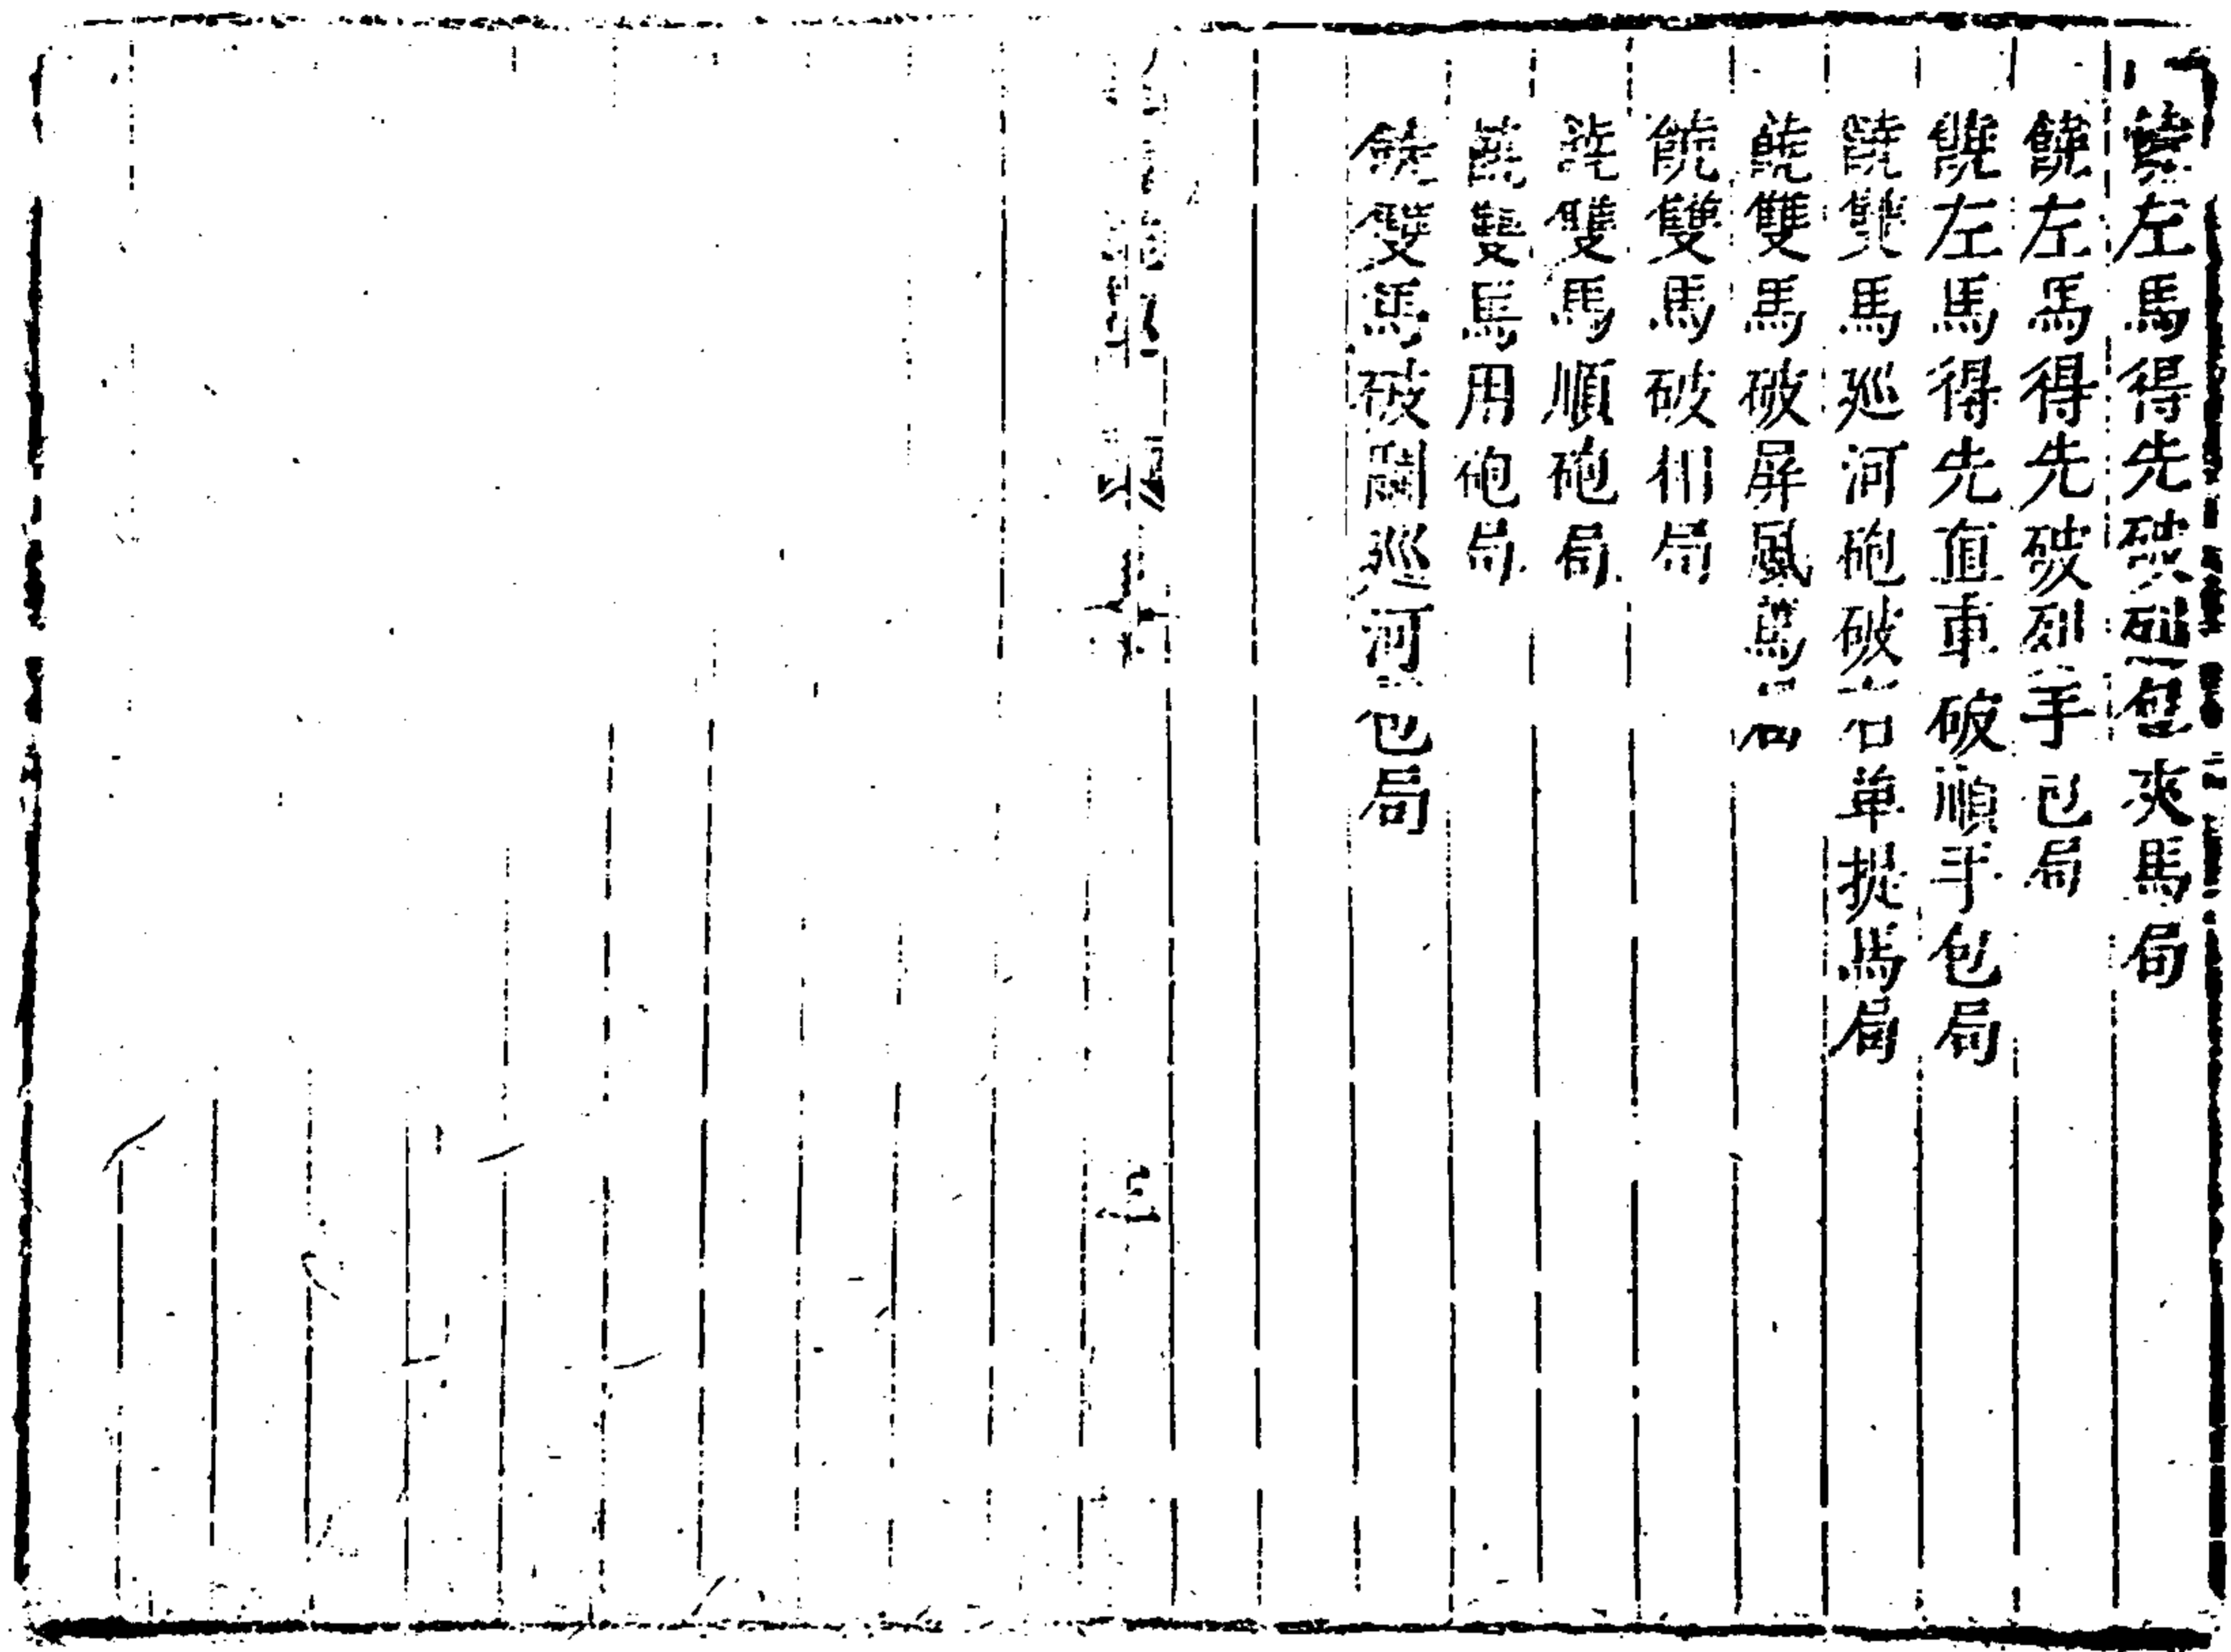 饒左馬得先破列包夾馬局
饒左馬得先破列手包局
饒左馬得先直車破順手包局
饒雙馬巡河砲破右单提馬局
饒雙馬破屏風馬局
饒雙馬破相局
饒雙馬順砲局
饒雙馬用砲局
饒雙馬破過巡河包局